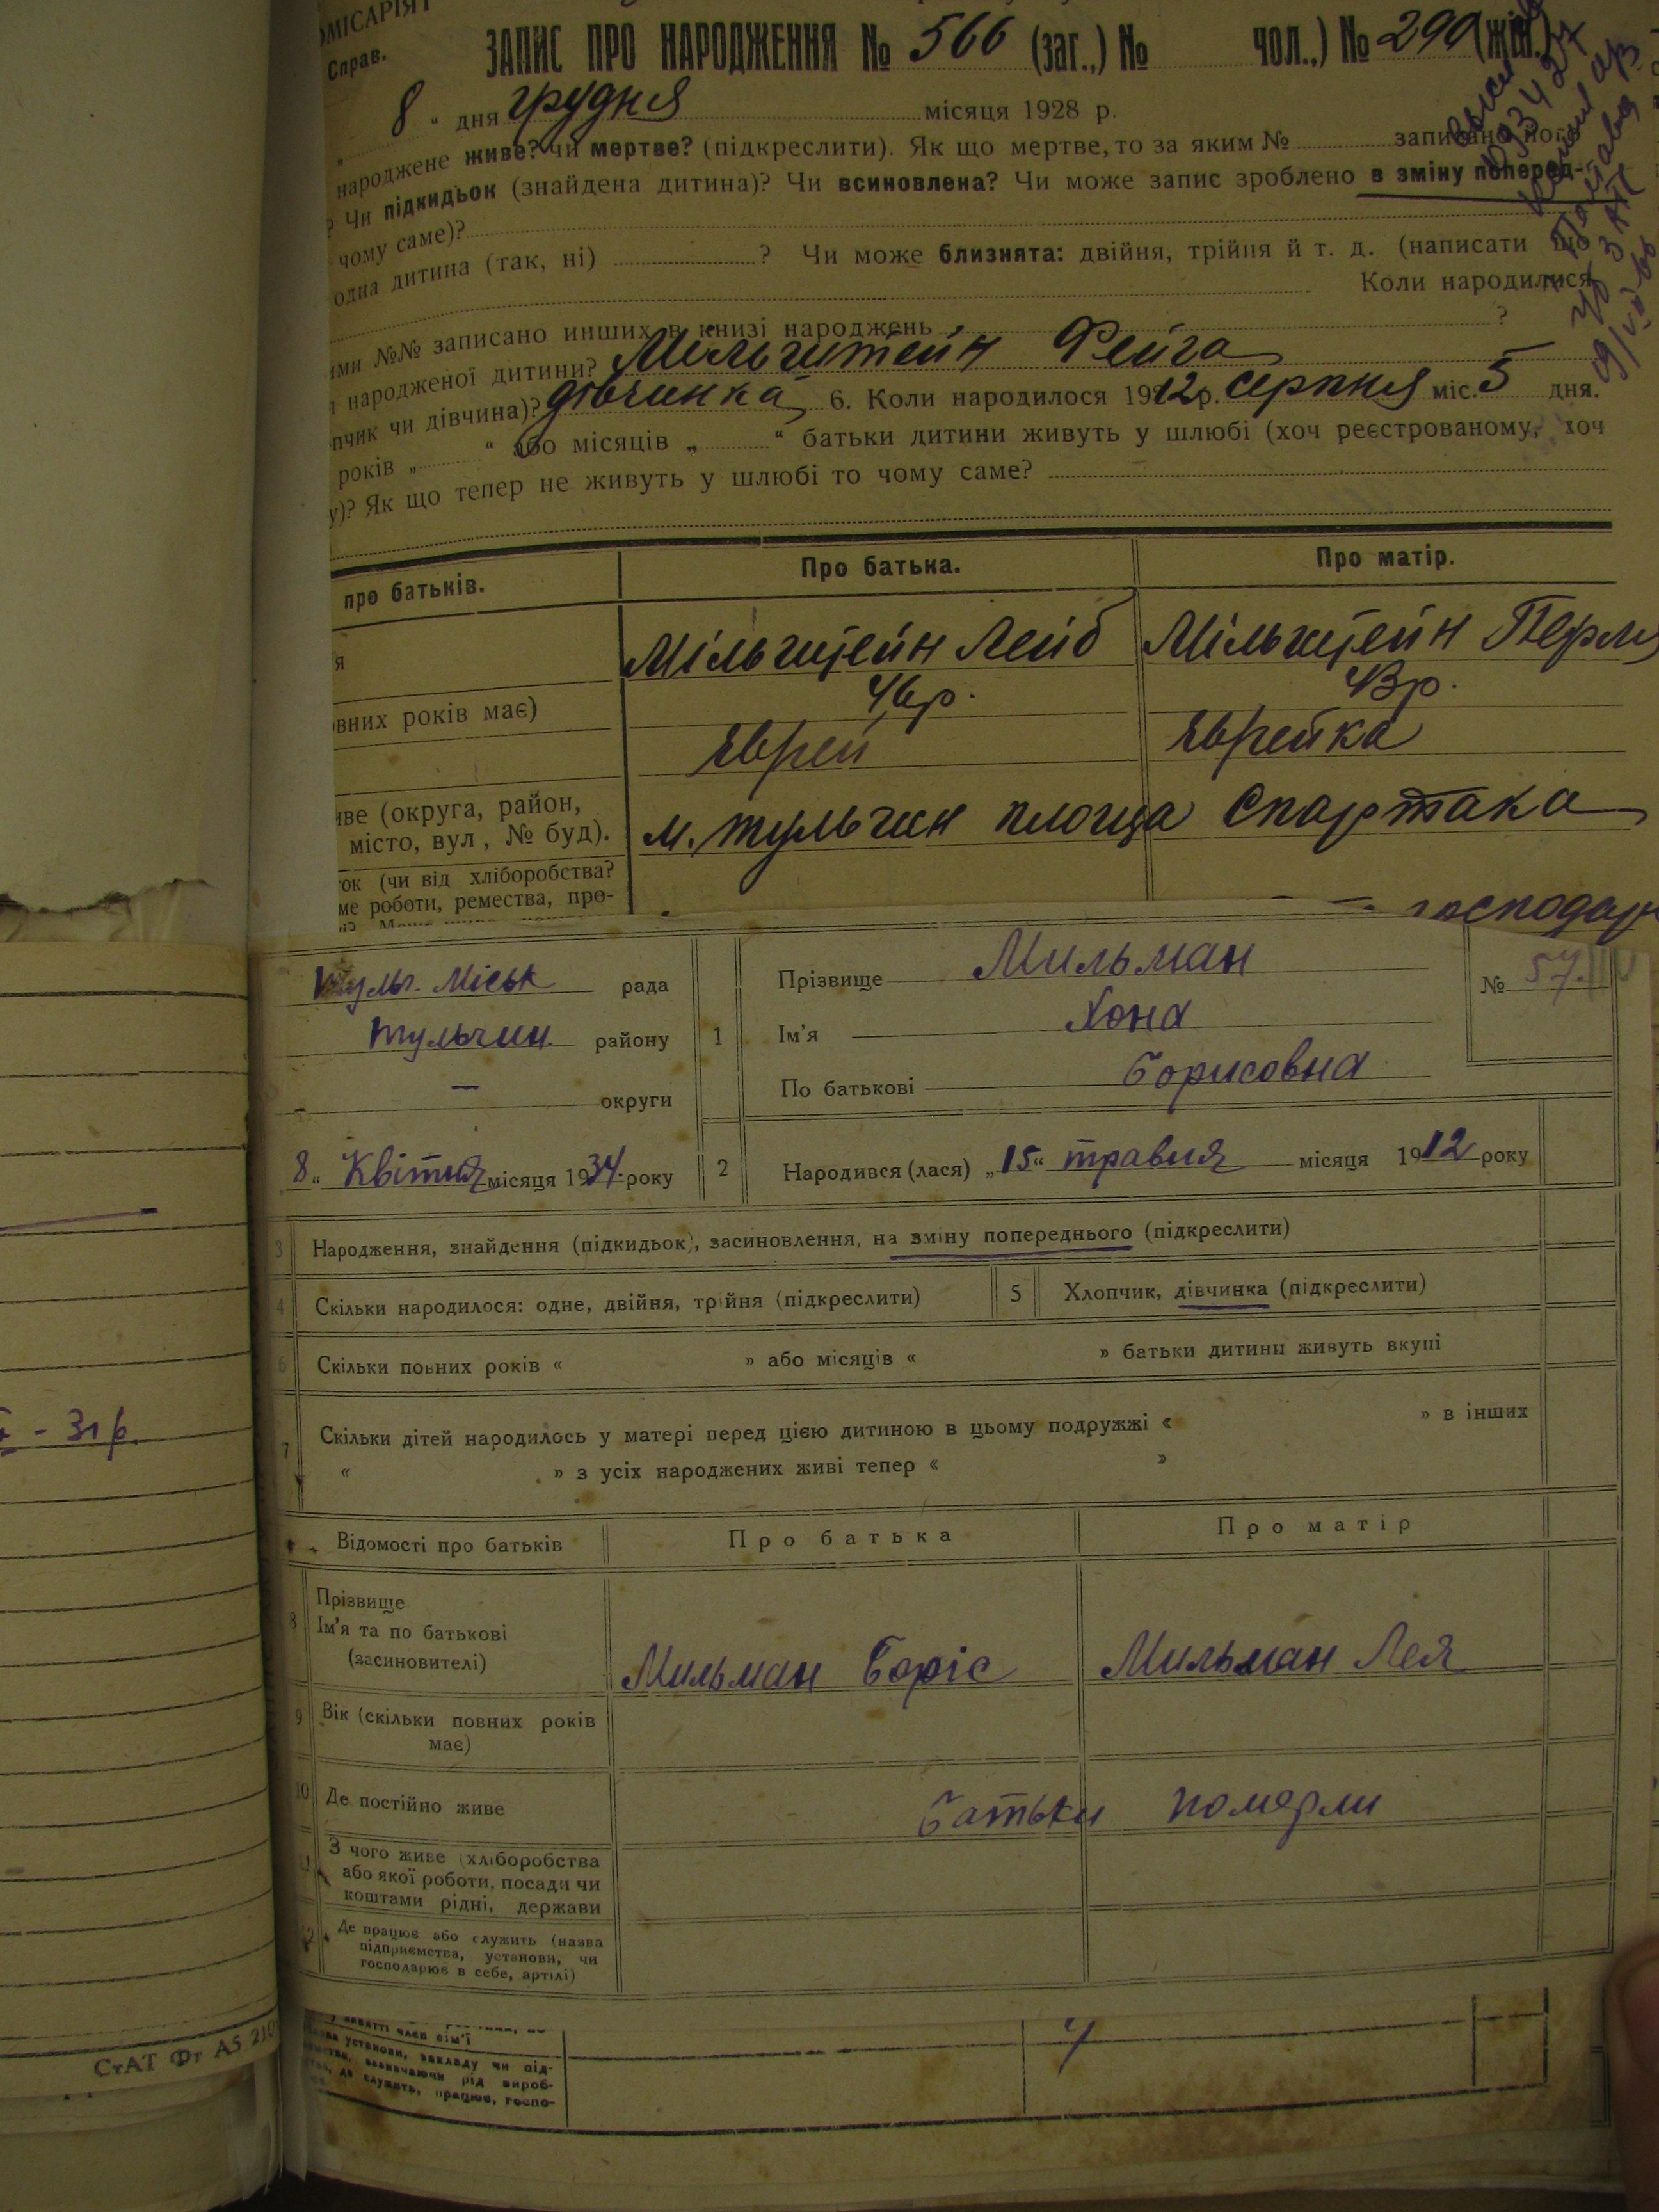 ОМІСАРІЯТ
Справ.
ЗАПИС ПРО НАРОДЖЕННЯ № 566 (заг.,) № чол.,) № 290 (жін.)
8 “ дня грудня місяця 1928 р.
народжене живе? чи мертве? (підкреслити). Як що мертве, то за яким № записано його
? Чи підкидьок (знайдена дитина)? Чи всиновлена? Чи може запис зроблено в зміну поперед-
чому саме)?
одна дитина (так, ні) ? Чи може близнята: двійня, трійня й т. д. (написати що
Коли народилися
ими №№ записано инших в книзі народжень ?
народженої дитини? Мильштейн Фейга
пчик чи дівчина)? дівчинка 6. Коли народилося 1912р. серпня міс. 5 дня.
років „ “ або місяців „ “ батьки дитини живуть у шлюбі (хоч реєстрованому, хоч
у)? Як що тепер не живуть у шлюбі то чому саме?
про батьків. Про батька. Про матір.
я Мільштейн Лейб Мільштейн Перля
овних років має) 46р. 43р.
Єврей Єврейка
иве (округа, район,
місто, вул , № буд). м. Тульчин площа Спартака
ок (чи від хліборобства?
ме роботи, ремества, про-
господар
Тульч. Міськ рада
Тульчин. району
— округи
8 “ Квітня місяця 1934. року
1 Прізвище Мильман
Ім'я Хона
По батькові Борисовна
№ 57.
2 Народився (лася) „15“ травня місяця 1912 року
3 Народження, знайдення (підкидьок), засиновлення, на зміну попереднього (підкреслити)
4 Скільки народилося: одне, двійня, трійня (підкреслити) 5 Хлопчик, дівчинка (підкреслити)
6 Скільки повних років « » або місяців « » батьки дитини живуть вкупі
7 Скільки дітей народилось у матері перед цією дитиною в цьому подружжі « » в інших
« » з усіх народжених живі тепер « »
Відомості про батьків Про батька Про матір
8 Прізвище
Ім'я та по батькові
(засиновителі) Мильман Боріс Мильман Лея
9 Вік (скільки повних років
має)
10 Де постійно живе батьки померли
З чого живе (хліборобства
або якої роботи, посади чи
коштами рідні, держави
Де працює або служить (назва
підприємства, установи, чи
господарює в себе, артілі)
- 31р.
СтАТ Фт А5 210
член сім'ї
установи, закладу чи під-
зазначаючи рід вироб-
де служить, працює, госпо-